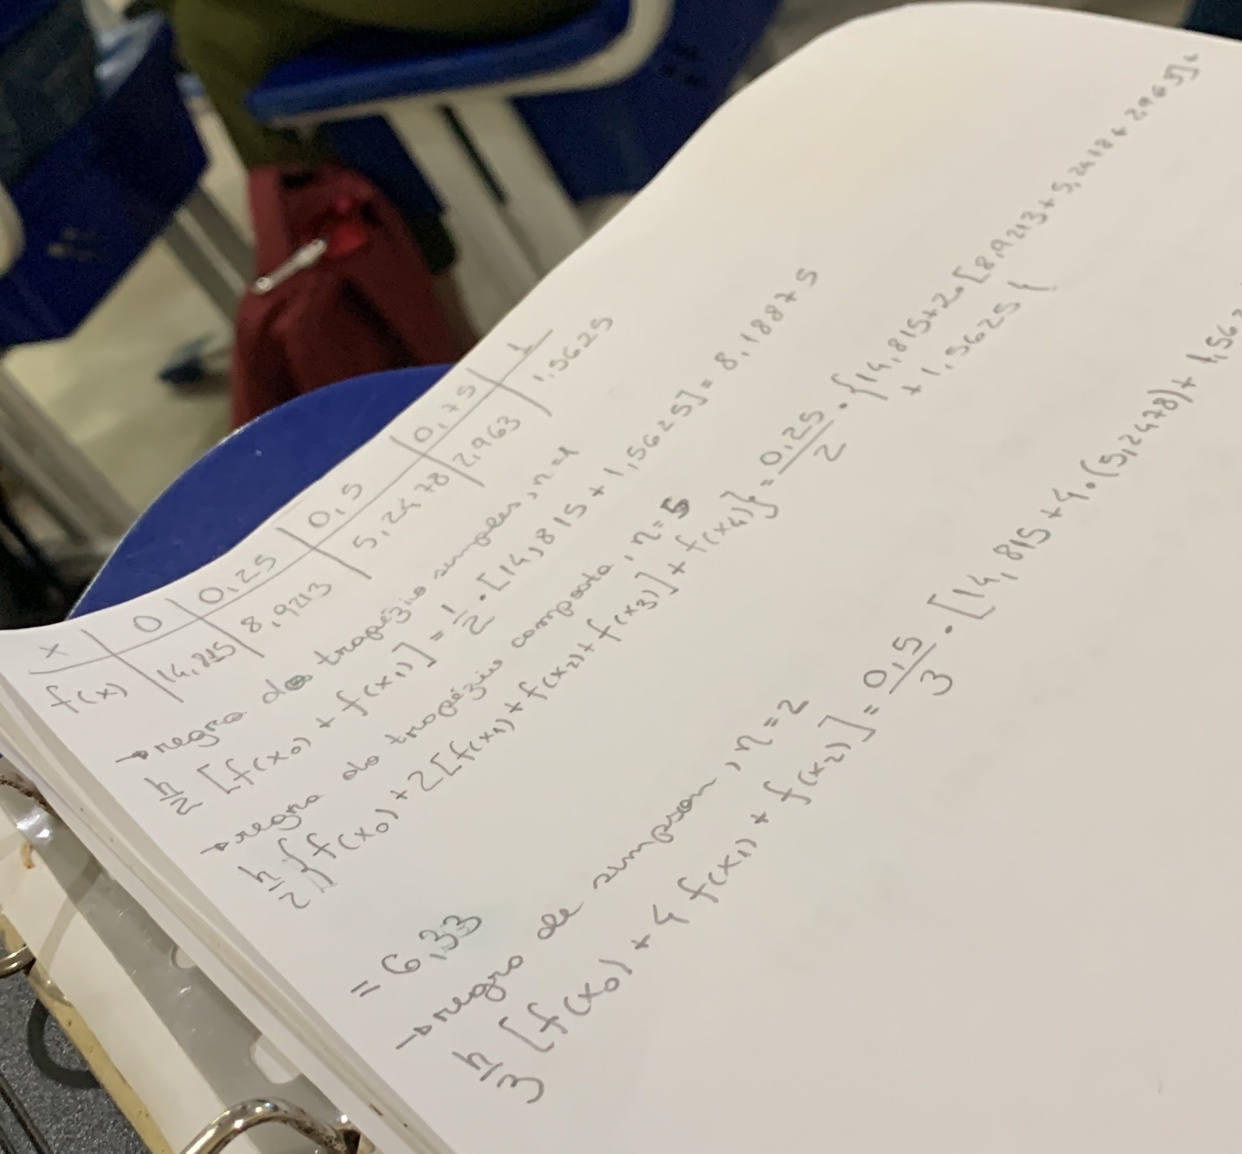 x | 0 | 0,25 | 0,5 | 0,75 | 1
f(x) | 14,815 | 8,9213 | 5,2478 | 2,963 | 1,5625
→ regra do trapézio simples, n=1
h/2 [f(x₀) + f(x₁)] = 1/2 · [14,815 + 1,5625] = 8,18875
→ regra do trapézio composta, n=5
h/2 {f(x₀)+2[f(x₁)+f(x₂)+f(x₃)]+f(x₄)} = 0,25/2 · {14,815+2·[8,9213+5,2478+2,963]+
+1,5625}
= 6,33
→ regra de simpson, n=2
h/3 [f(x₀) + 4 f(x₁) + f(x₂)] = 0,5/3 · [14,815+4·(5,2478)+1,56